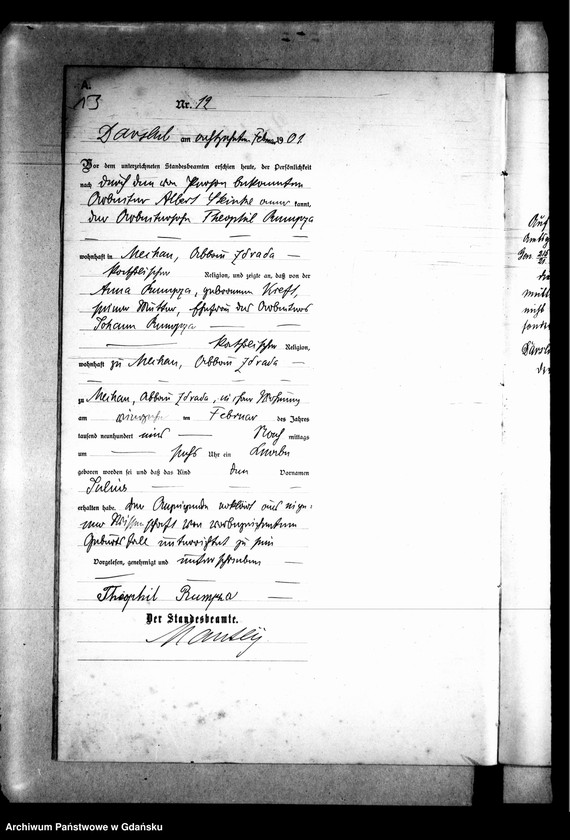 A.
13
Nr. 12
Darslub am achtzehnten Februar 1901.
Vor dem unterzeichneten Standesbeamten erschien heute, der Persönlichkeit
nach durch den von Person bekannten
Arbeiter Albert kannt,
der Arbeitersohn Theophil Rumpza
wohnhaft in Mechau, Abbau Zdrada
katholischer Religion, und zeigte an, daß von der
Anna Rumpza, geborenen Kreft,
seiner Mutter, Ehefrau des Arbeiters
Johann Rumpza
katholischer Religion,
wohnhaft zu Mechau, Abbau Zdrada
zu Mechau, Abbau Zdrada, in ihrer Wohnung
am ten Februar des Jahres
tausend neunhundert eins Nach mittags
um sechs Uhr ein Knabe
geboren worden sei und daß das Kind den Vornamen
Julius
erhalten habe. Der Anzeigende erklärt aus eige-
ner Wissenschaft von vorbezeichnetem
Geburtsfall unterrichtet zu sein
Vorgelesen, genehmigt und unterschrieben
Theophil Rumpza
Der Standesbeamte.
Auf
die
nicht
Darsl
Archiwum Państwowe w Gdańsku